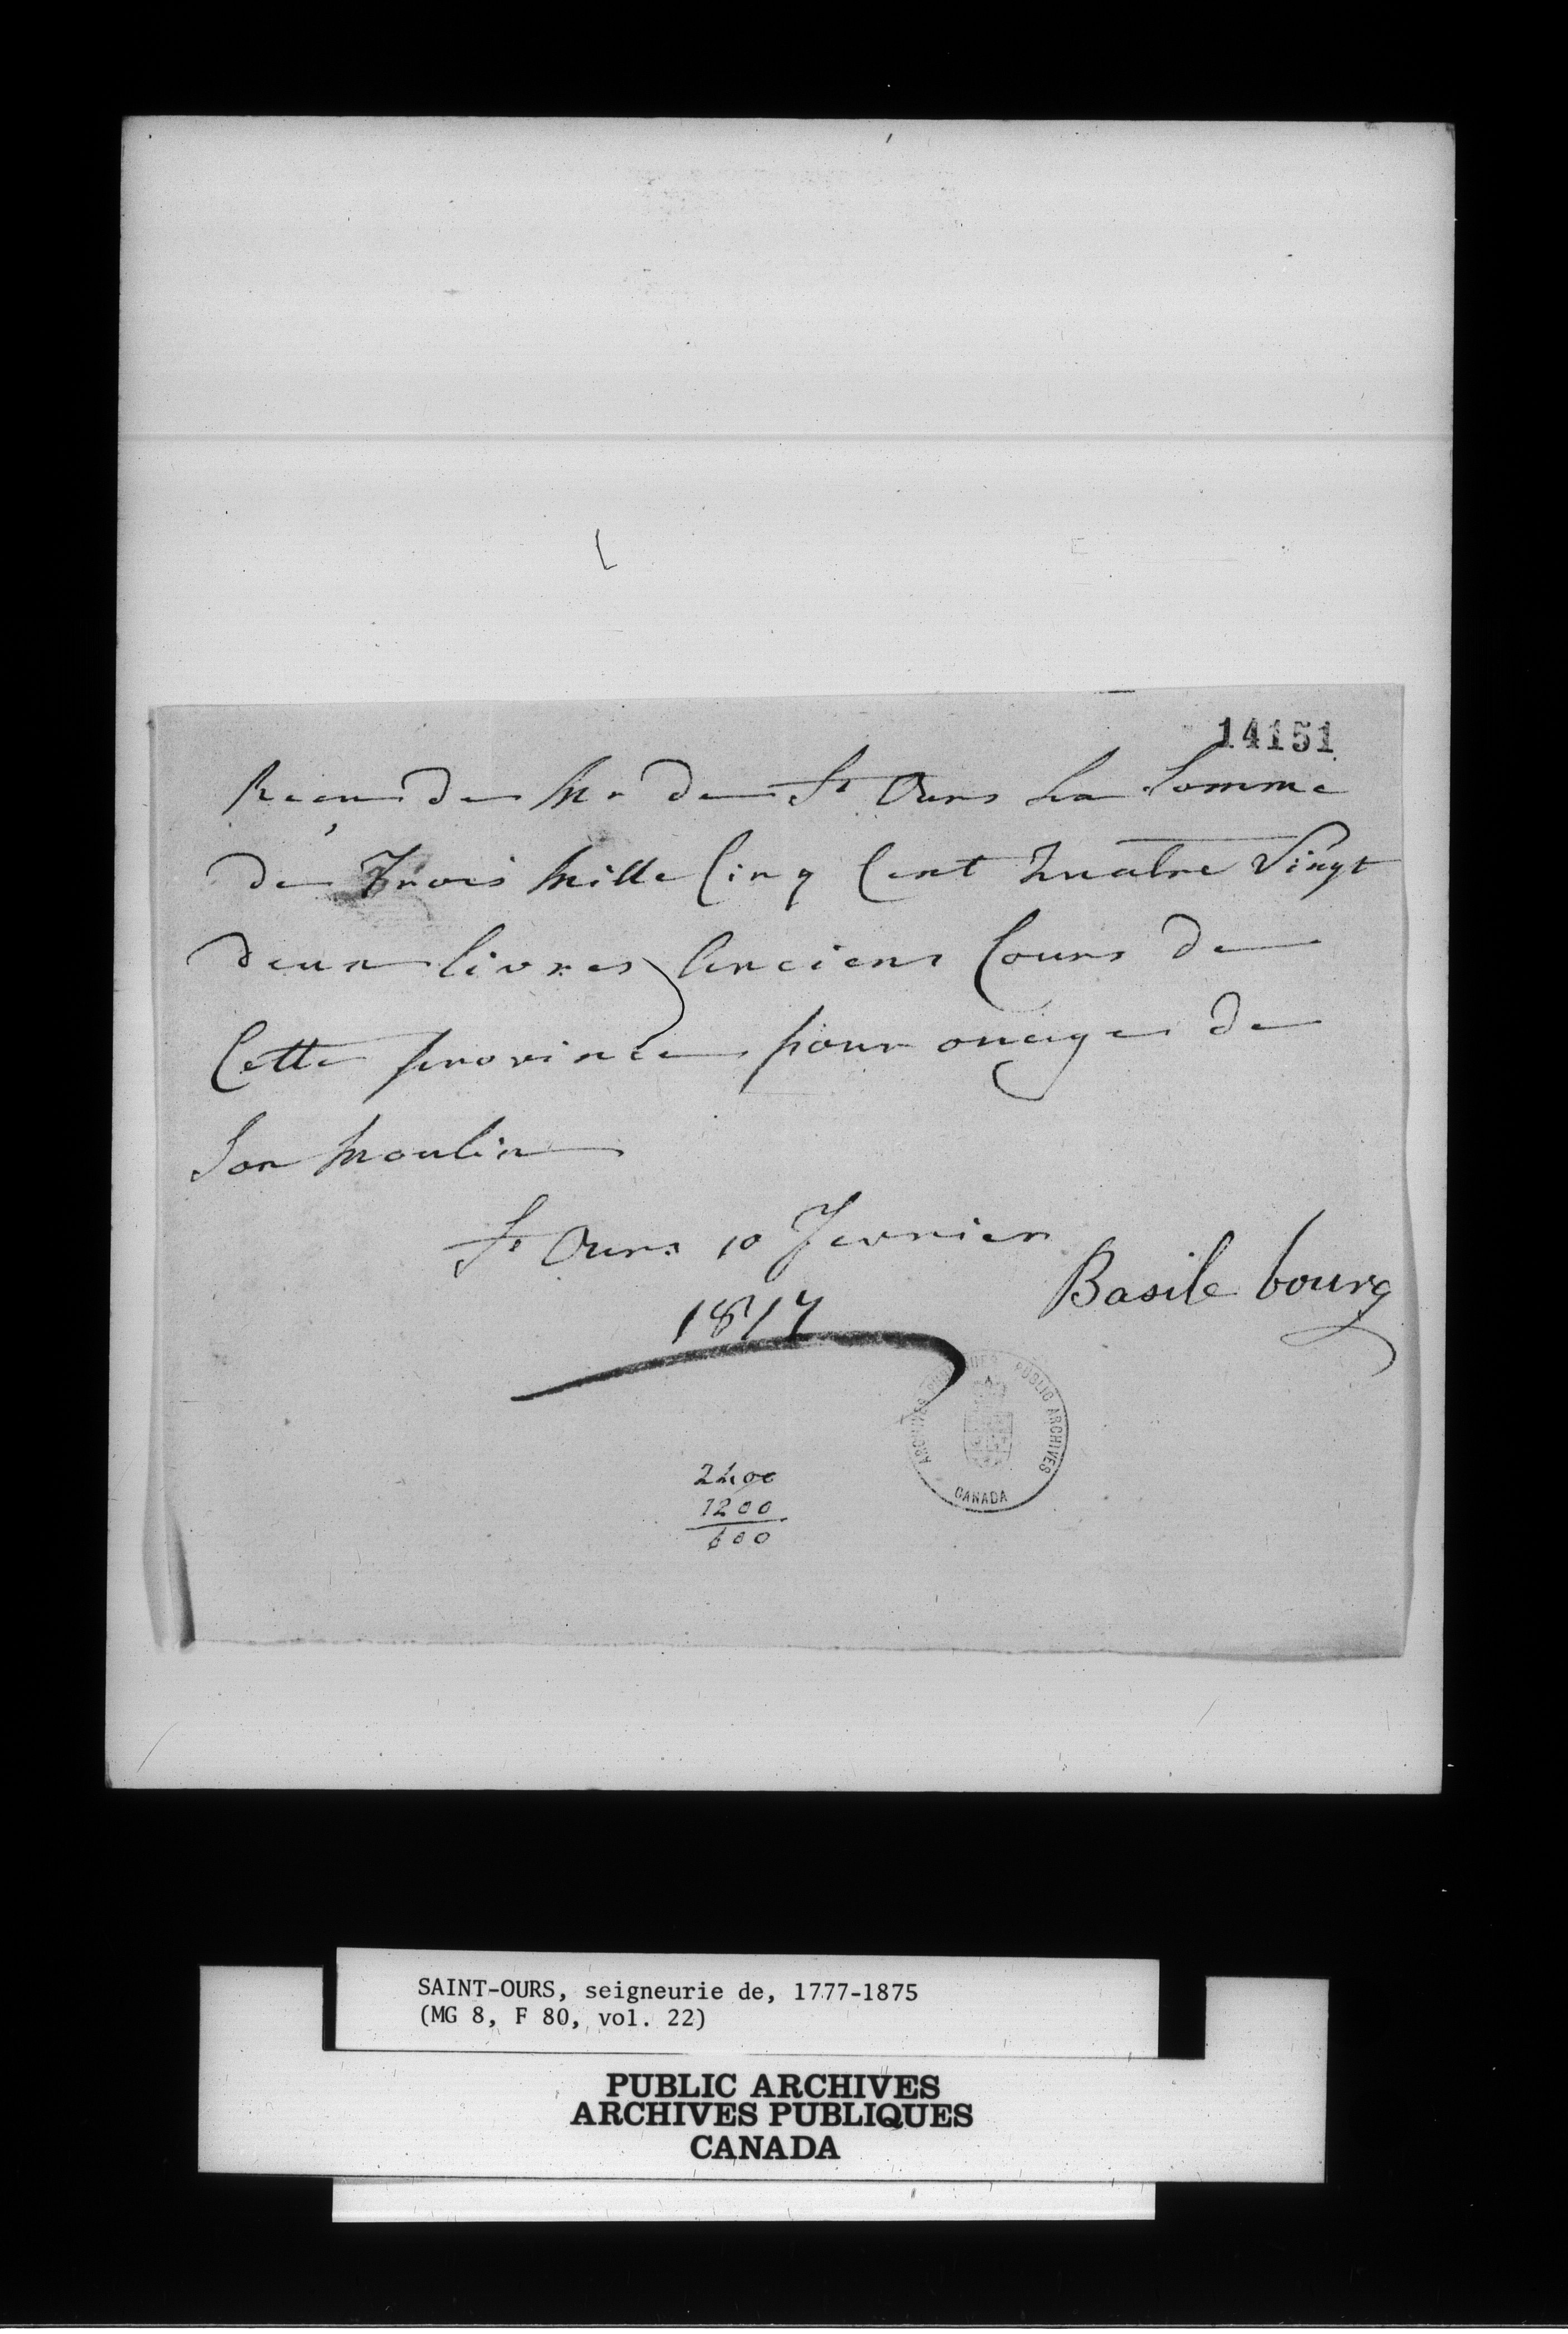 14151
Recu de Mr de St Ours La Somme
de Trois Mille Cinq Cent Quatre Vingt
deux livres Anciens Cours de
Cette province pour ouvage de
Son Moulin
St Ours 10 Fevrier
1817
Basile bourg
ARCHIVES PUBLIQUES PUBLIC ARCHIVES
CANADA
2400
1200
600
SAINT-OURS, seigneurie de, 1777-1875
(MG 8, F 80, vol. 22)
PUBLIC ARCHIVES
ARCHIVES PUBLIQUES
CANADA